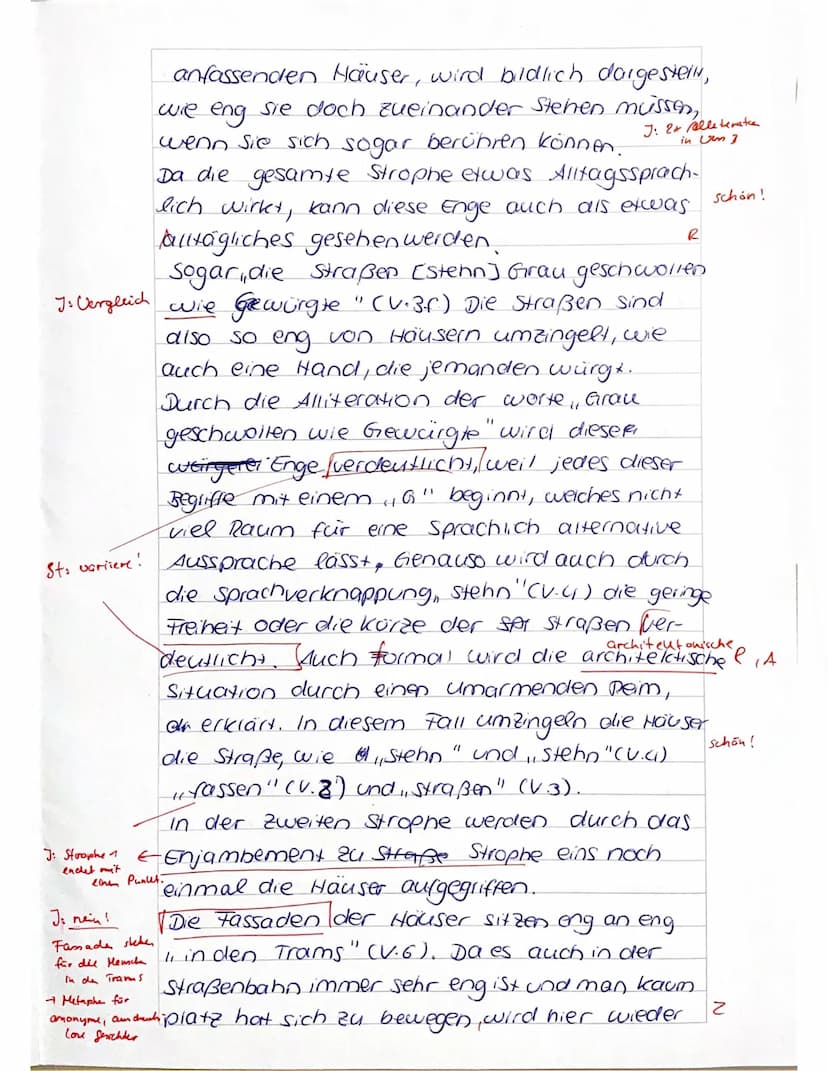 anfassenden Häuser, wird bildlich dargestellt,
wie eng sie doch zueinander stehen müssen,
wenn sie sich sogar berühren können.
J: 2x
in Vers 3
Da die gesamte Strophe etwas Alltagssprach-
lich wirkt, kann diese Enge auch als etwas
schön!
Alltägliches gesehen werden.
R
Sogar „die Straßen [stehn] Grau geschwollen
J: Vergleich
wie Gewürgte" (V.3f.) Die Straßen sind
also so eng von Häusern umzingelt, wie
auch eine Hand, die jemanden würgt.
Durch die Alliteration der worte „Grau
geschwollen wie Gewürgte" wird dieser
Enge verdeutlicht, weil jedes dieser
Begriffe mit einem „G" beginnt, welches nicht
viel Raum für eine sprachlich alternative
St: variiere!
Aussprache lässt. Genauso wird auch durch
die Sprachverknappung „stehn" (V.4) die geringe
Freiheit oder die kürze der Straßen ver-
architektonische
deutlicht. Auch formal wird die architektische
R, A
Situation durch einen umarmenden Reim,
erklärt. In diesem Fall umzingeln die Häuser
die Straße, wie „stehn" und „stehn" (V.4)
schön!
„fassen" (V.2) und „straßen" (V.3).
in der zweiten Strophe werden durch das
J: Strophe 1
endet mit
einem Punkt.
Enjambement zu Straße Strophe eins noch
einmal die Häuser aufgegriffen.
J: nein!
Fassaden stehen
für die Menschen
in den Trams
→ Metapher für
anonyme, ausdrucks-
lose Gesichter
Die Fassaden der Häuser sitzen eng an eng
„in den Trams" (V.6). Da es auch in der
Straßenbahn immer sehr eng ist und man kaum
platz hat sich zu bewegen, wird hier wieder
Z